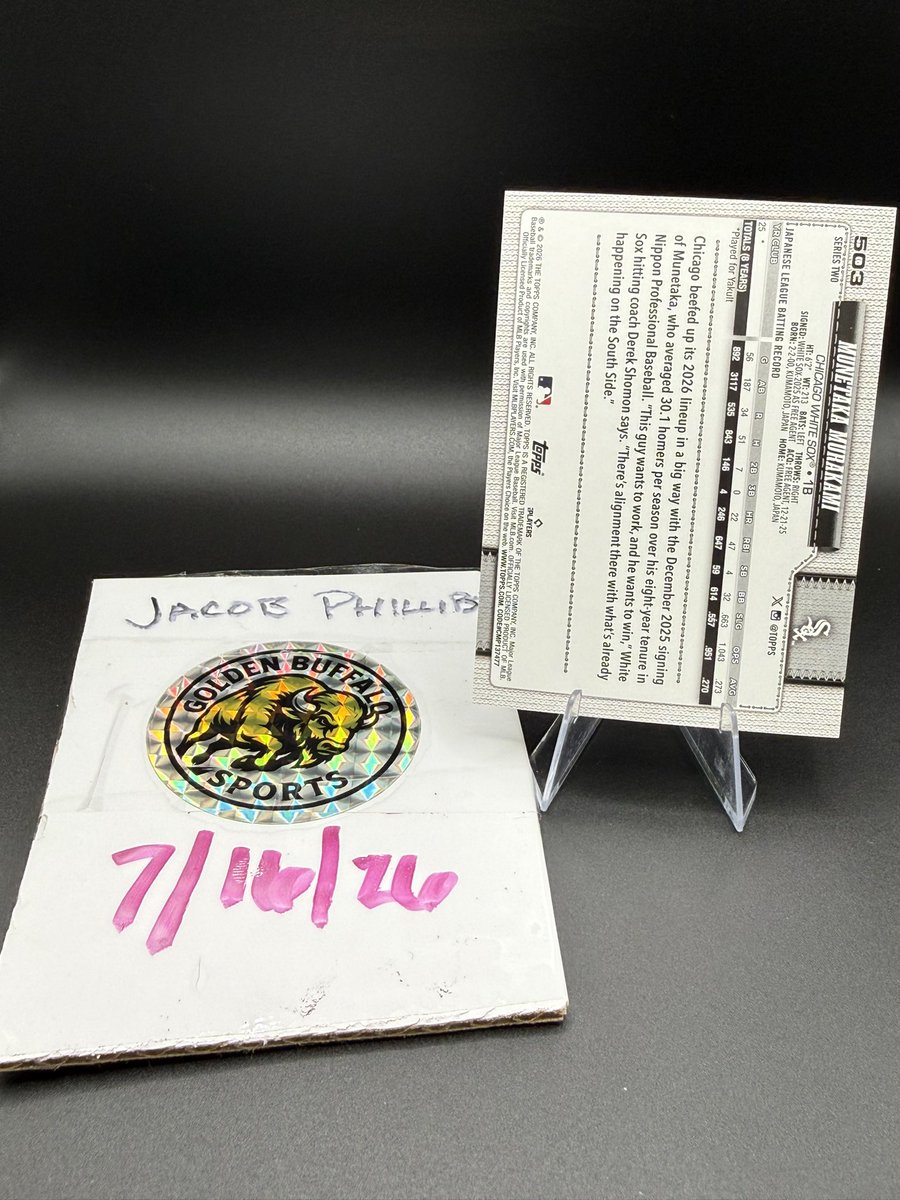 JACOB PHILLIPS
GOLDEN BUFFALO
SPORTS
7/16/26
503
SERIES TWO
MUNETAKA MURAKAMI
CHICAGO WHITE SOX® • 1B
HT: 6'2" WT: 213 BATS: LEFT THROWS: RIGHT
SIGNED: WHITE SOX, 2025 AS FREE AGENT ACQ: FREE AGENT, 12-21-25
BORN: 2-2-00, KUMAMOTO, JAPAN HOME: KUMAMOTO, JAPAN
X @TOPPS
JAPANESE LEAGUE BATTING RECORD
YR CLUB G AB R H 2B 3B HR RBI SB BB SLG OPS AVG
25 * 56 187 34 51 7 0 22 47 4 32 .663 1.043 .273
TOTALS (8 YEARS) 892 3117 535 843 146 4 246 647 59 614 .557 .951 .270
*Played for Yakult
Chicago beefed up its 2026 lineup in a big way with the December 2025 signing
of Munetaka, who averaged 30.1 homers per season over his eight-year tenure in
Nippon Professional Baseball. "This guy wants to work, and he wants to win," White
Sox hitting coach Derek Shomon says. "There's alignment there with what's already
happening on the South Side."
Topps
PLAYERS
® & © 2026 THE TOPPS COMPANY, INC. ALL RIGHTS RESERVED. TOPPS IS A REGISTERED TRADEMARK OF THE TOPPS COMPANY, INC. Major League
Baseball trademarks and copyrights are used with permission of Major League Baseball. Visit MLB.com. OFFICIALLY LICENSED PRODUCT OF MLB
Officially Licensed Product of MLB Players, Inc. Visit MLBPLAYERS.COM, the Players Choice on the web. WWW.TOPPS.COM. CODE#CMP137477
Sox